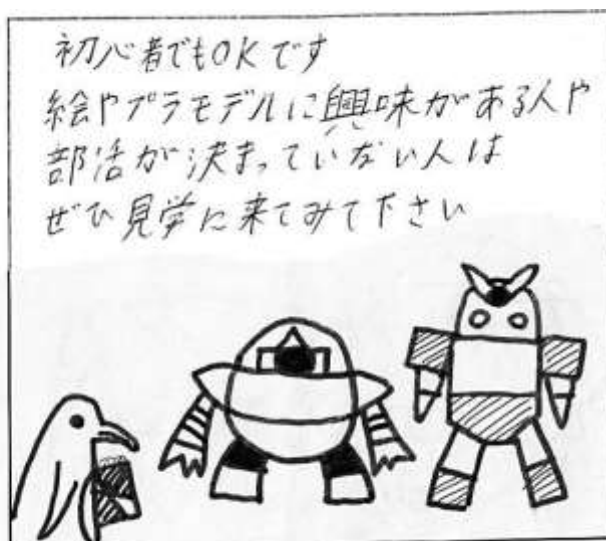 初心者でもOKです
絵やプラモデルに興味がある人や
部活が決まっていない人は
ぜひ見学に来てみて下さい